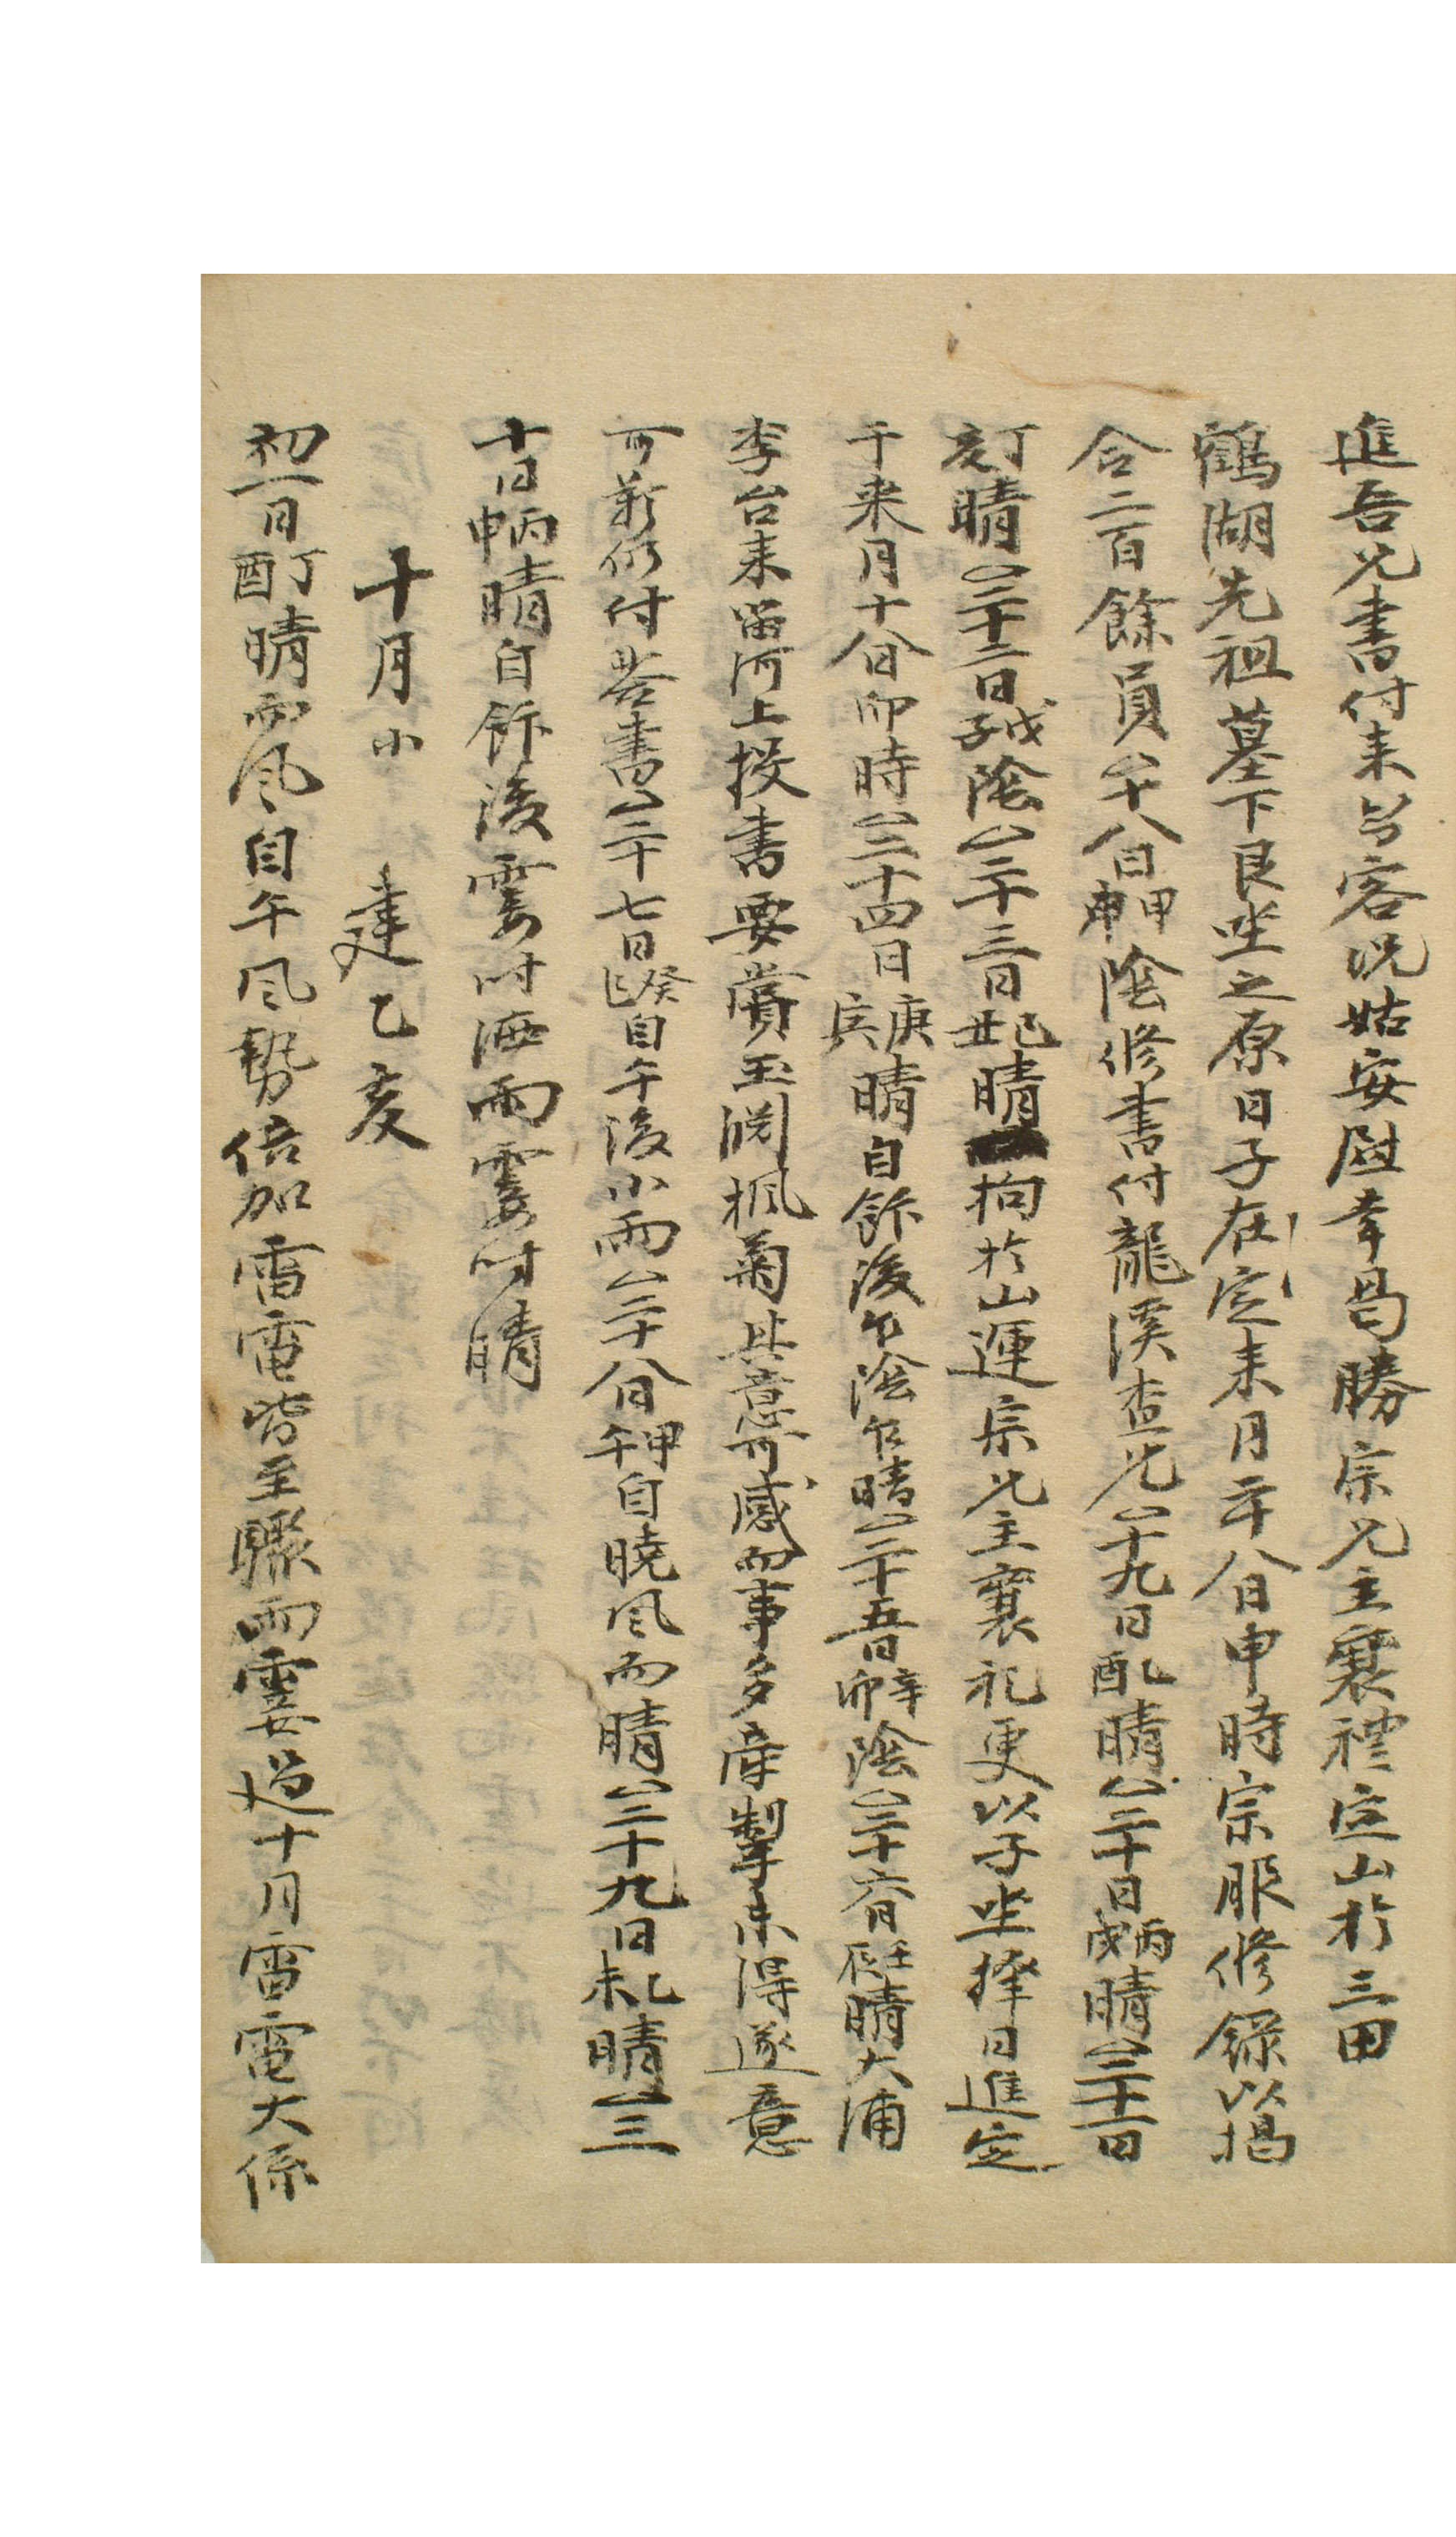 進吾兄書付来兮客況姑安慰幸曷勝宗兄主襄禮定山於三田
鶴湖先祖墓下艮坐之原日子在定来月二十八日申時宗服修錄以揭
合二百餘員△十八日甲申陰修書付龍溪査兄△十九日乙酉晴△二十日丙戌晴△二十一日
丁亥晴△二十二日戊子陰△二十三日己丑晴拘於山運宗兄主襄礼更以子坐擇日進定
于来月十八日卯時△二十四日庚寅晴自飾後乍陰乍晴△二十五日辛卯陰△二十六日壬辰晴大浦
李台来留河上投書要賞玉淵楓菊其意可感而事多牽掣未得遂意
可歎仍付答書△二十七日癸巳自午後小雨△二十八日甲午自曉風而晴△二十九日乙未晴△三
十日丙申晴自飾後霎时洒雨霎时晴
十月小 建乙亥
初一日丁酉晴而風自午風勢倍加雷電皆至驟雨霎過十月雷電大係